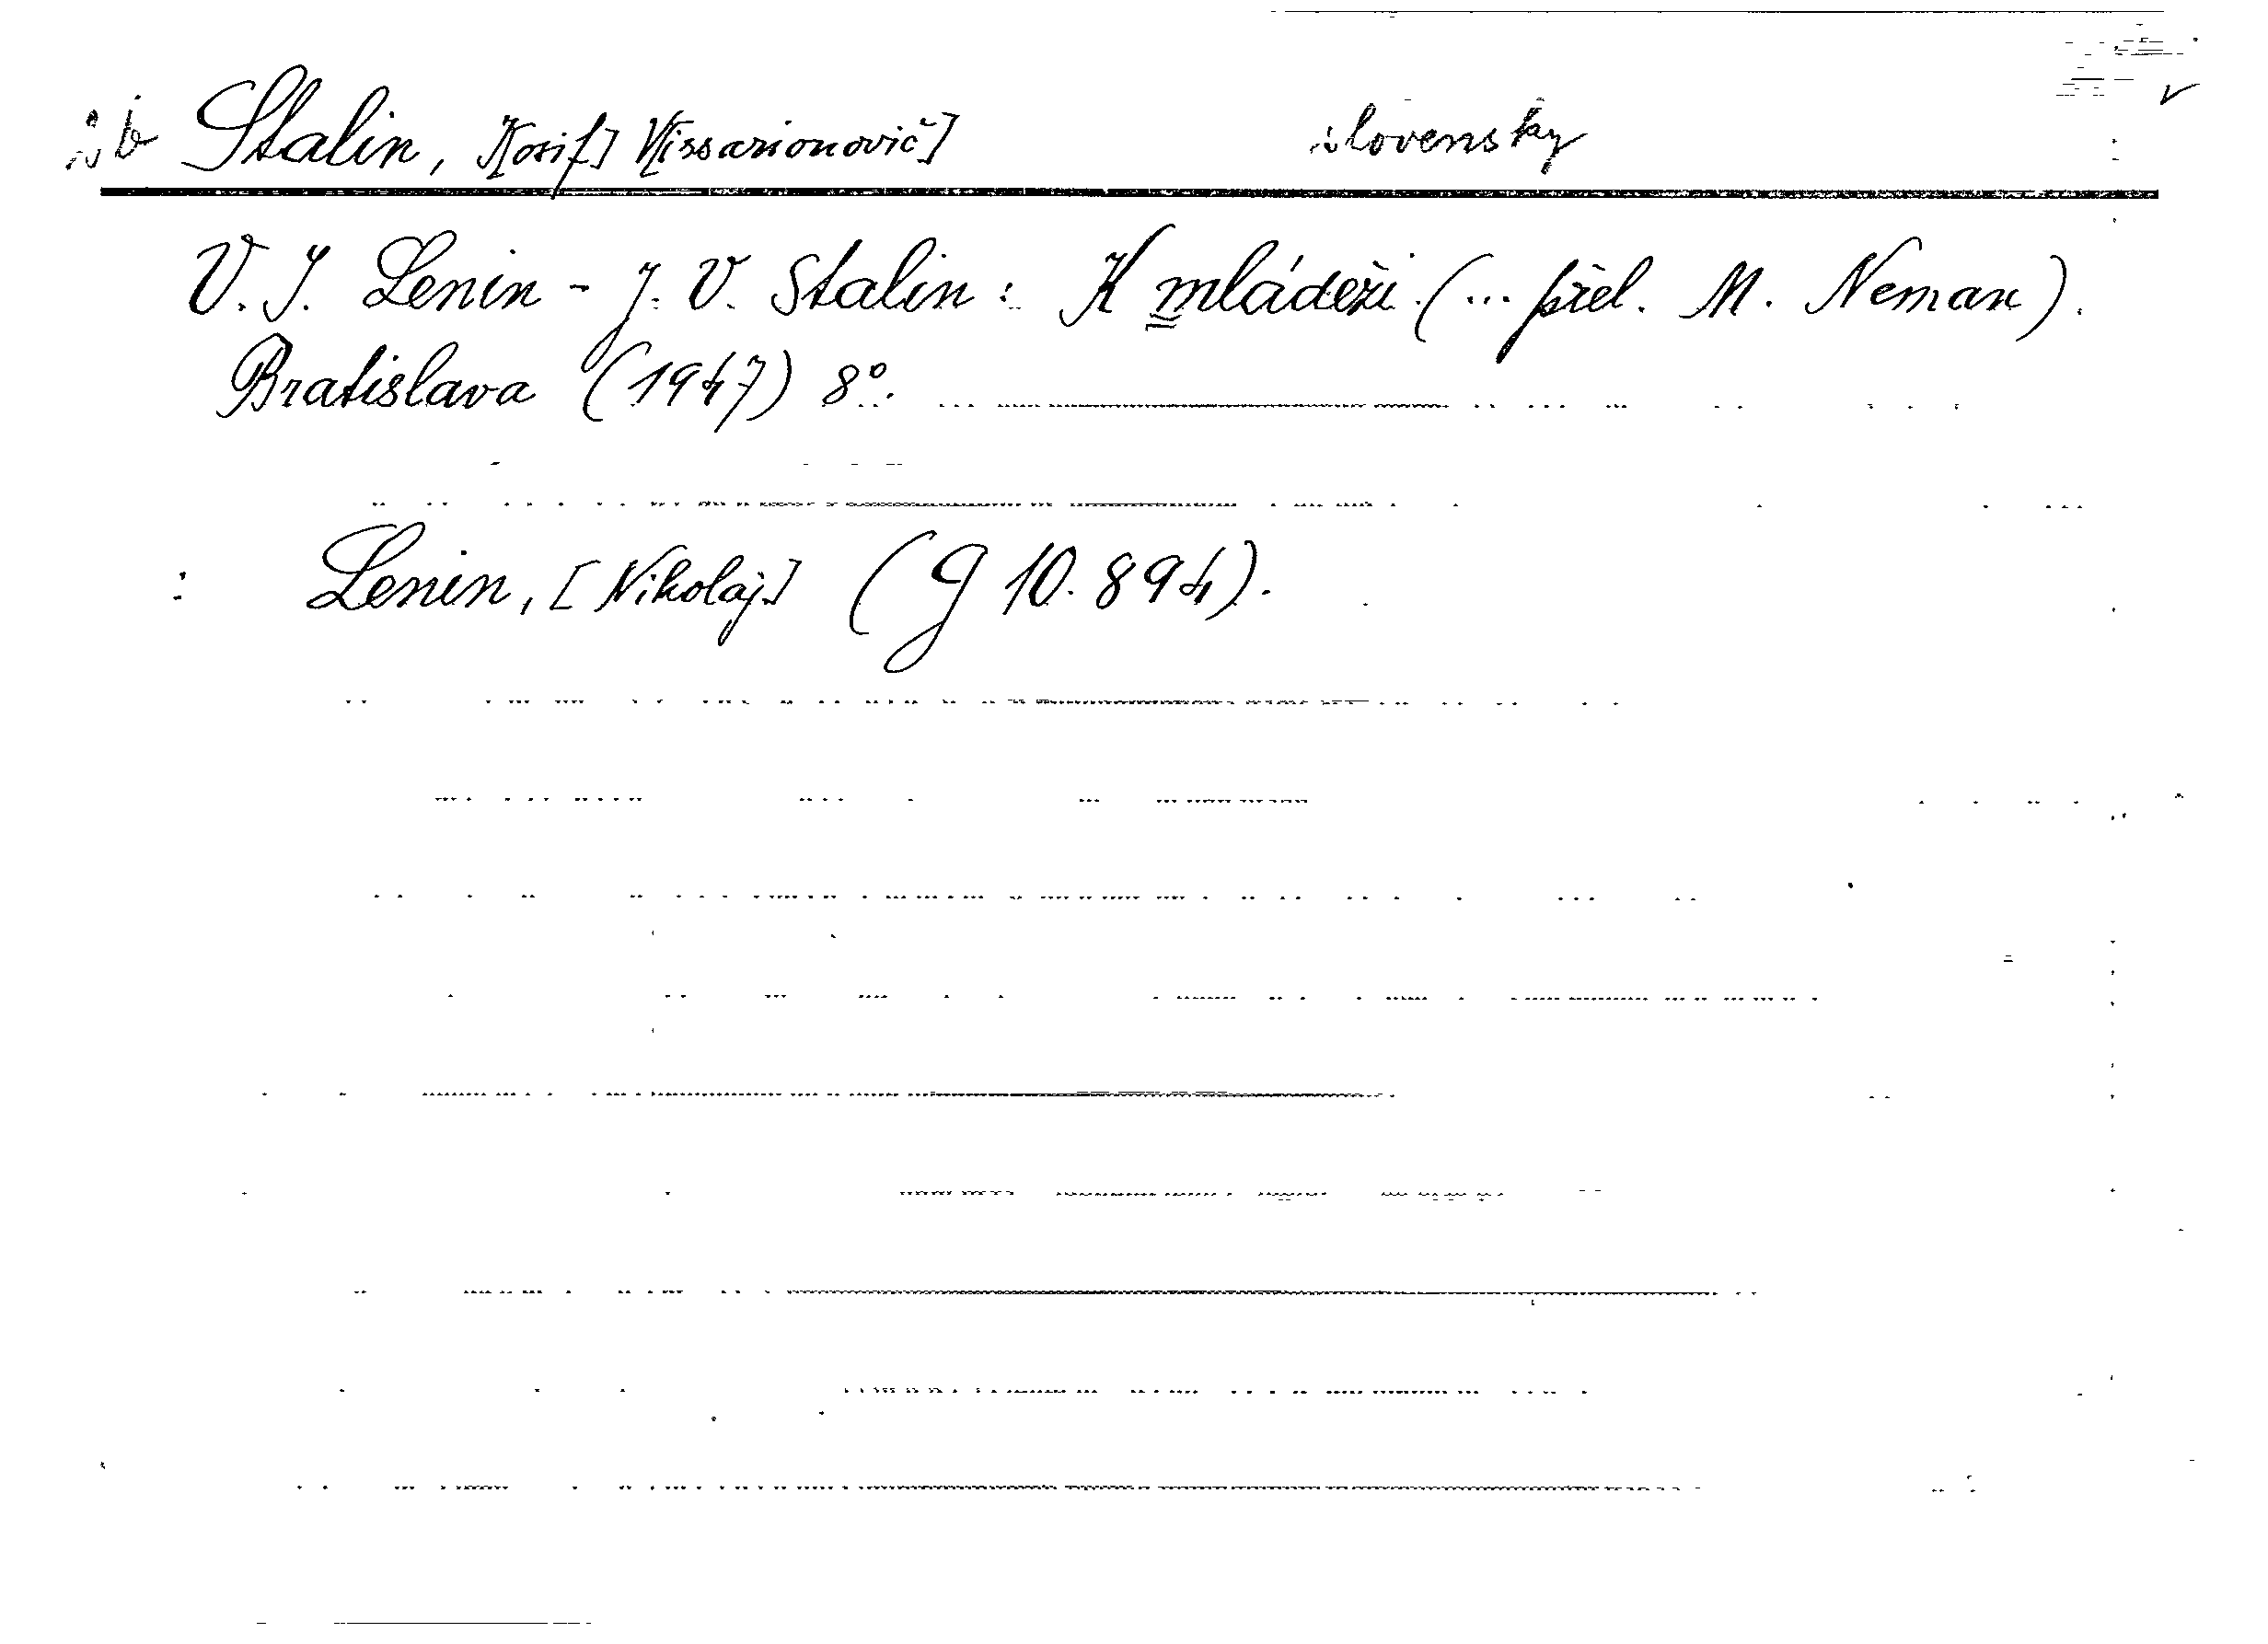 Stalin, J[osif] V[issarionovič] slovensky
V. I. Lenin - J. V. Stalin: K mládeži (... přel. M. Neman).
Bratislava (1947) 8°.
Lenin, [Nikolaj] (G 10.894).